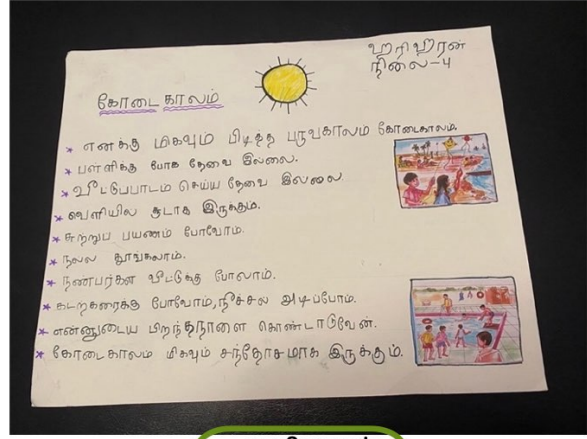 ஹரிஹரன்
நிலை-4
கோடை காலம்
* எனக்கு மிகவும் பிடித்த பருவகாலம் கோடைகாலம்.
* பள்ளிக்கு போக தேவை இல்லை.
* வீட்டுப்பாடம் செய்ய தேவை இல்லை
* வெளியில சூடாக இருக்கும்.
* சுற்றுப் பயணம் போவோம்.
* நல்ல தூங்கலாம்.
* நண்பர்கள் வீட்டுக்கு போலாம்.
* கடற்கரைக்கு போவோம், நீச்சல் அடிப்போம்.
* என்னுடைய பிறந்தநாளை கொண்டாடுவேன்.
* கோடைகாலம் மிகவும் சந்தோசமாக இருக்கும்.